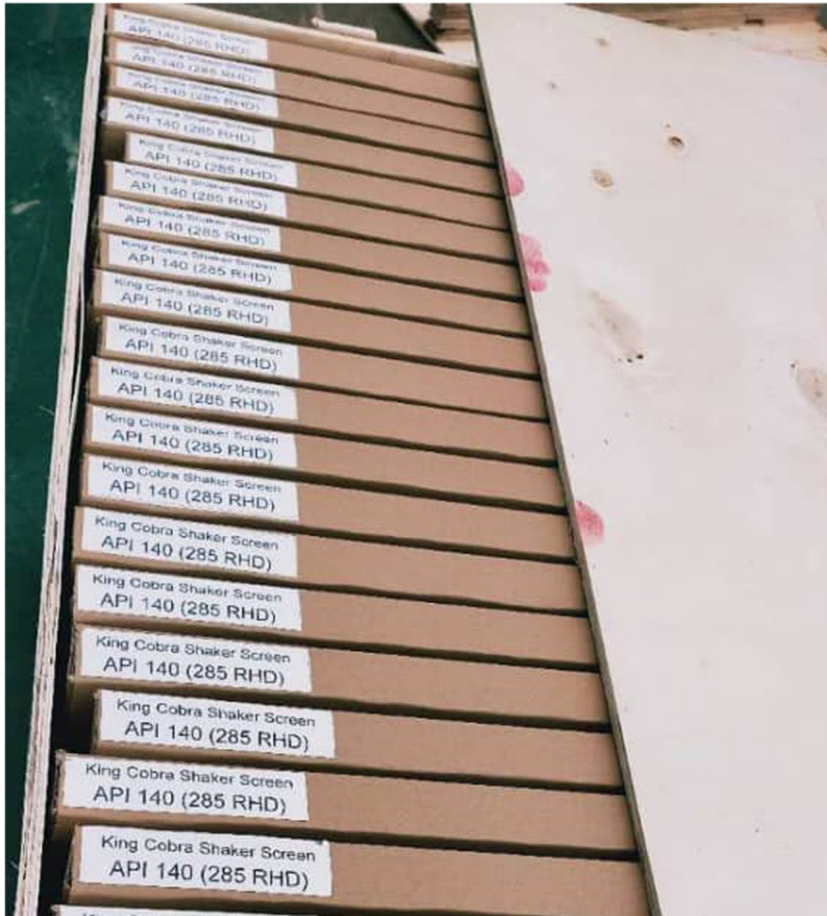 King Cobra Shaker Screen
API 140 (285 RHD)
King Cobra Shaker Screen
API 140 (285 RHD)
King Cobra Shaker Screen
API 140 (285 RHD)
King Cobra Shaker Screen
API 140 (285 RHD)
King Cobra Shaker Screen
API 140 (285 RHD)
King Cobra Shaker Screen
API 140 (285 RHD)
King Cobra Shaker Screen
API 140 (285 RHD)
King Cobra Shaker Screen
API 140 (285 RHD)
King Cobra Shaker Screen
API 140 (285 RHD)
King Cobra Shaker Screen
API 140 (285 RHD)
King Cobra Shaker Screen
API 140 (285 RHD)
King Cobra Shaker Screen
API 140 (285 RHD)
King Cobra Shaker Screen
API 140 (285 RHD)
King Cobra Shaker Screen
API 140 (285 RHD)
King Cobra Shaker Screen
API 140 (285 RHD)
King Cobra Shaker Screen
API 140 (285 RHD)
King Cobra Shaker Screen
API 140 (285 RHD)
King Cobra Shaker Screen
API 140 (285 RHD)
King Cobra Shaker Screen
API 140 (285 RHD)